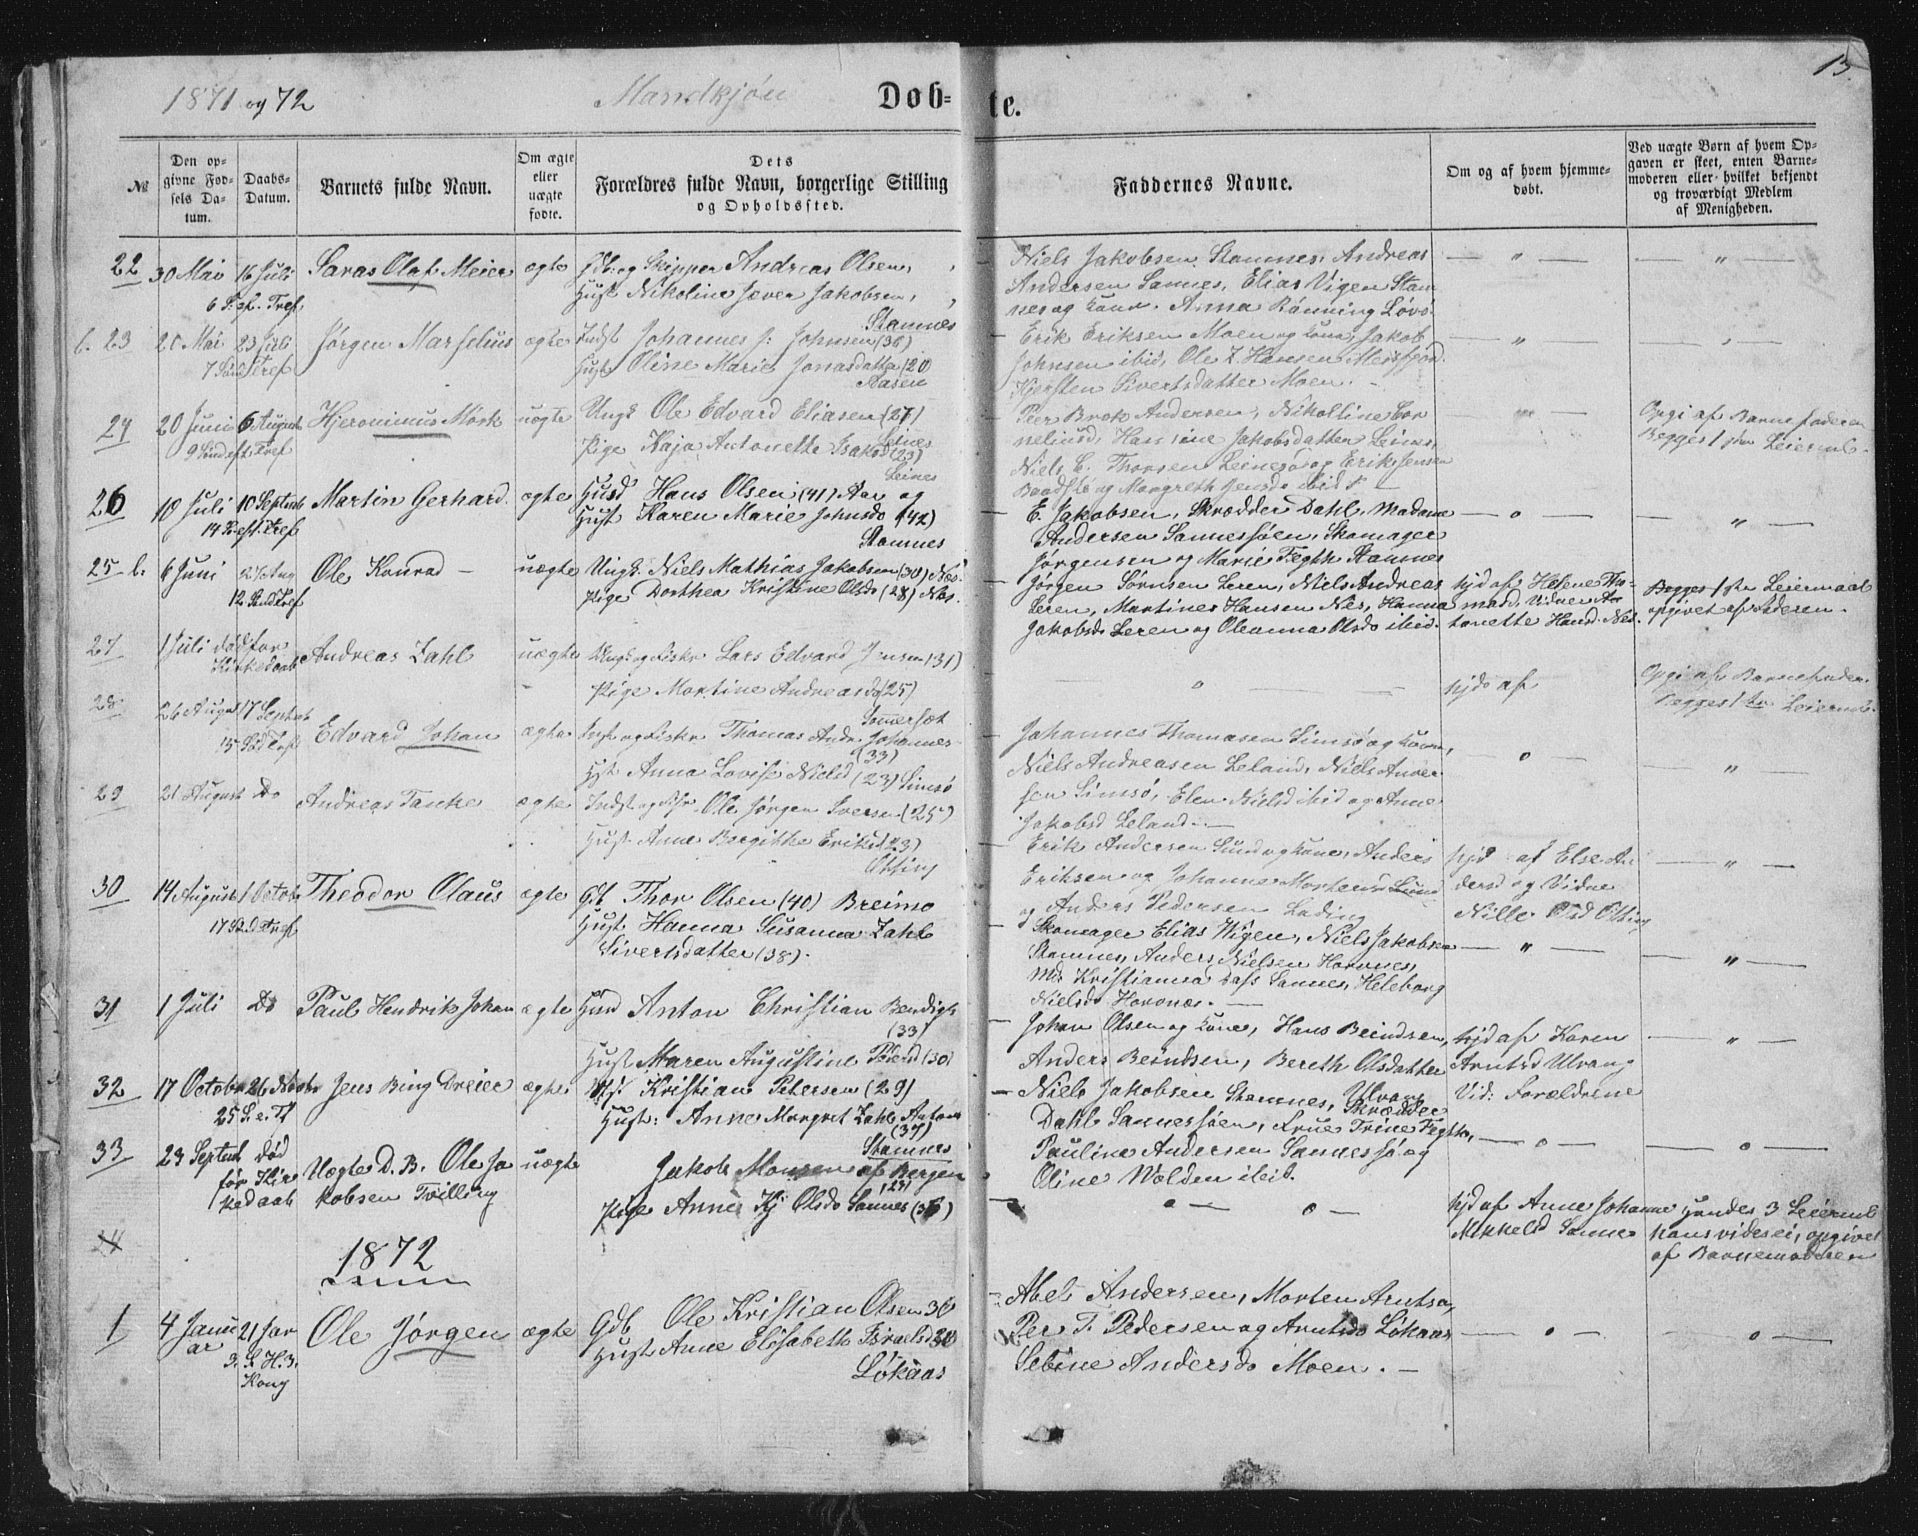 1871 og 72 Mandkjøn Døb- te. 13.
№
Den op-
givne Fød-
sels Da-
tum.
Daabs-
Datum.
Barnets fulde Navn.
Om ægte
eller
uægte
fødte.
Dets
Forældres fulde Navn, borgerlige Stilling
og Opholdssted.
Faddernes Navne.
Om og af hvem hjemme-
døbt.
Ved uægte Børn af hvem Op-
gaven er skeet, enten Barne-
moderen eller hvilket bekjendt
og troværdigt Medlem
af Menigheden.
22 30 Mai 16 Juli Saras Olaf Meier ægte Gdb. og Skipper Andreas Olsen,
6 S. ef. Tref
Hust Nikoline Jæver Jakobsen,
Stamnes
Niels Jakobsen Stamnes, Andreas
Andersen Sannes, Elias Vigen Stam
nes og Anna Rønning Løvø
— " —
— " —
b. 23 Mai 23 Juli Jørgen Marselius ægte Indst Johannes J. Johnsen (36)
7 Sønd Tref
Hust Oline Marie Jonasdatter (20
Aasen
Erik Eriksen Moen og Kone, Jakob
Johnsen ibid, Ole Z. Hansen Meisfjord
Kjersten Sivertsdatter Moen. —
— " —
24 20 Juni 6 August Hjeronimus Mørk uægte Ungk Ole Edvard Eliasen (27)
9 Sønd eft Tref
Leines
Pige Kaja Antonette Isaksd (23)
Leines
Peer Brok Andersen, Nikolline Cor
neliusd, Hansine Jakobsdatter Leines,
Niels C. Thorsen Leinesø og Erik Jensen
og Margreth Jensd ibid
Opgi af Barnefaderen
Begges 1ste Leiermaal
26 10 Juli 10 Septemb Martin Gerhard. ægte Husd Hans Olsen (41) Aar og
14 S. eft. Tref
Hust Karen Marie Johnsda (42)
Stamnes
E. Jakobsen, Skrædder Dahl, Madame
Andersen Sannessøen, Skomager
Jørgensen og Marie Fegth Stamnes
— o —
— " —
25 b. 6 Juni 27 Aug Ole Konrad — uægte Ungk. Niels Mathias Jakobsen (30) Næs.
12 Sønd Tref
Pige Dorthea Kristine Olsd (28) Næs.
Jørgen Sørnsen Leren, Niels Andreas
Leren, Martines Hansen Nes, Hanna
Jakobsd Leren og Oleanna Olsda ibid.
hjd af Helene Tho-
masd, Vidner An
tonette Hansd. Nes.
Begges 1ste Leiermaal
opgivet af Faderen.
27 1 Juli død før
Kirkedaab
Andreas Zahl uægte Ungk og Fiskr Lars Edvard Jensen (31)
Pige Martine Andreasd (25)
Sommersæt
— o —
hjdb af
Opgi af Barnefaderen
Begges 1ste Leiermaal
28 26 August 17 Septemb Edvard Johan ægte Indst og Fiskr Thomas Andr. Johannes-
15 Sønd Tref
(33)
Hust Anna Lovise Nielsd (23) Simsø
Johannes Thomasen Simsø og Kone,
Niels Andreasen Leland, Niels Ander
sen Simsø, Elen Nielsd ibid og Anne
Jakobsd Leland. —
— o —
— " —
29 21 August Do Andreas Tanke ægte Indst og Fiskr Ole Jørgen Iversen (25)
Hust Anne Bergitte Eriksd (23)
Othing
Erik Andersen Sund og Kone, Anders
Eriksen og Johanne Mortensd Sund
og Anders Pedersen Lading
hjd af Else An
dersd og Vidne
Nille Othing
— " —
30 14 August 1 Octob Theodor Olaus ægte Gdb Thor Olsen (40) Breimo
17 Tref
Hust Hanna Susanna Zahl
Sivertsdatter (38).
Skomager Elias Wigen, Niels Jakobsen
Stamnes, Anders Nielsen Hovnes,
Md. Kristianna Dass Sannes, Heleborg
Nielsd Hovnæs. —
— " —
— " —
31 1 Juli Do Paul Hendrik Johan ægte Husd Anton Christian Bendigts
(33)
Hust Maren Augustine Pedersd (30)
Ulvang
Johan Olsen og Kone, Hans Beindsen,
Anders Beindsen, Bereth Olsdatter
hjd af Karen
Arntsd Ulvang
Vid: Forældrene
— " —
32 17 October 26 Novbr Jens Bing Dreier ægte Kristian Petersen (29)
25 S. e. Tf
Hust: Anne Margret Zahl Anton
(37)
Stamnes
Niels Jakobsen Stamnes, Skrædder
Dahl Sannessøen, Frue Trine Fegth,
Pauline Andersen Sannessø og
Oline Wolden ibid.
— o —
— o —
33 23 Septemb død
før Kir
kedaab
Uægte D. B. Ole Ja
kobsen Tvilling
uægte Jakob Monsen af Bergen
(23)
Pige Anne Kj Olsda Sannes (36)
— o — o —
hjd af Anne Johanne
Mikkelsd Sannes
Hendes 3 Leiermaal
hans vides ei, opgivet
af Barnemoderen
34
1872
1 4 Janu
ar
21 Jan
3. S. H. 3.
Kong
Ole Jørgen ægte Gdb Ole Kristian Olsen 36
Hust Anne Elisabeth Israelsd 30
Løkaas
Abel Andersen, Morten Arntsen,
Per T. Pedersen og Arntsda Løkaas
Sebine Andersda Moen. —
— o —
— o —